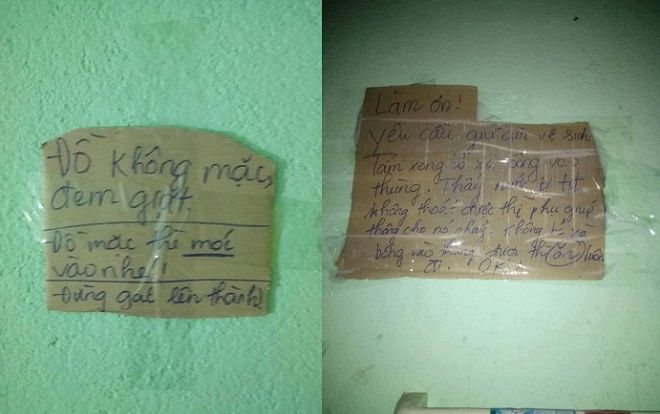 Đồ không mặc,
đem giặt.
Đồ mặc thì móc
vào nhe!
Đừng gát lên thành!
Làm ơn!
yêu cầu giữ gìn vệ sinh
Tắm xong bỏ xà bông vào
thùng. Thấy nước bị tụt
không thoát được thì phụ giúp
thông cho nó chảy. Không bỏ xà
bông vào thùng được thì (ăn) luôn
đi. OK!